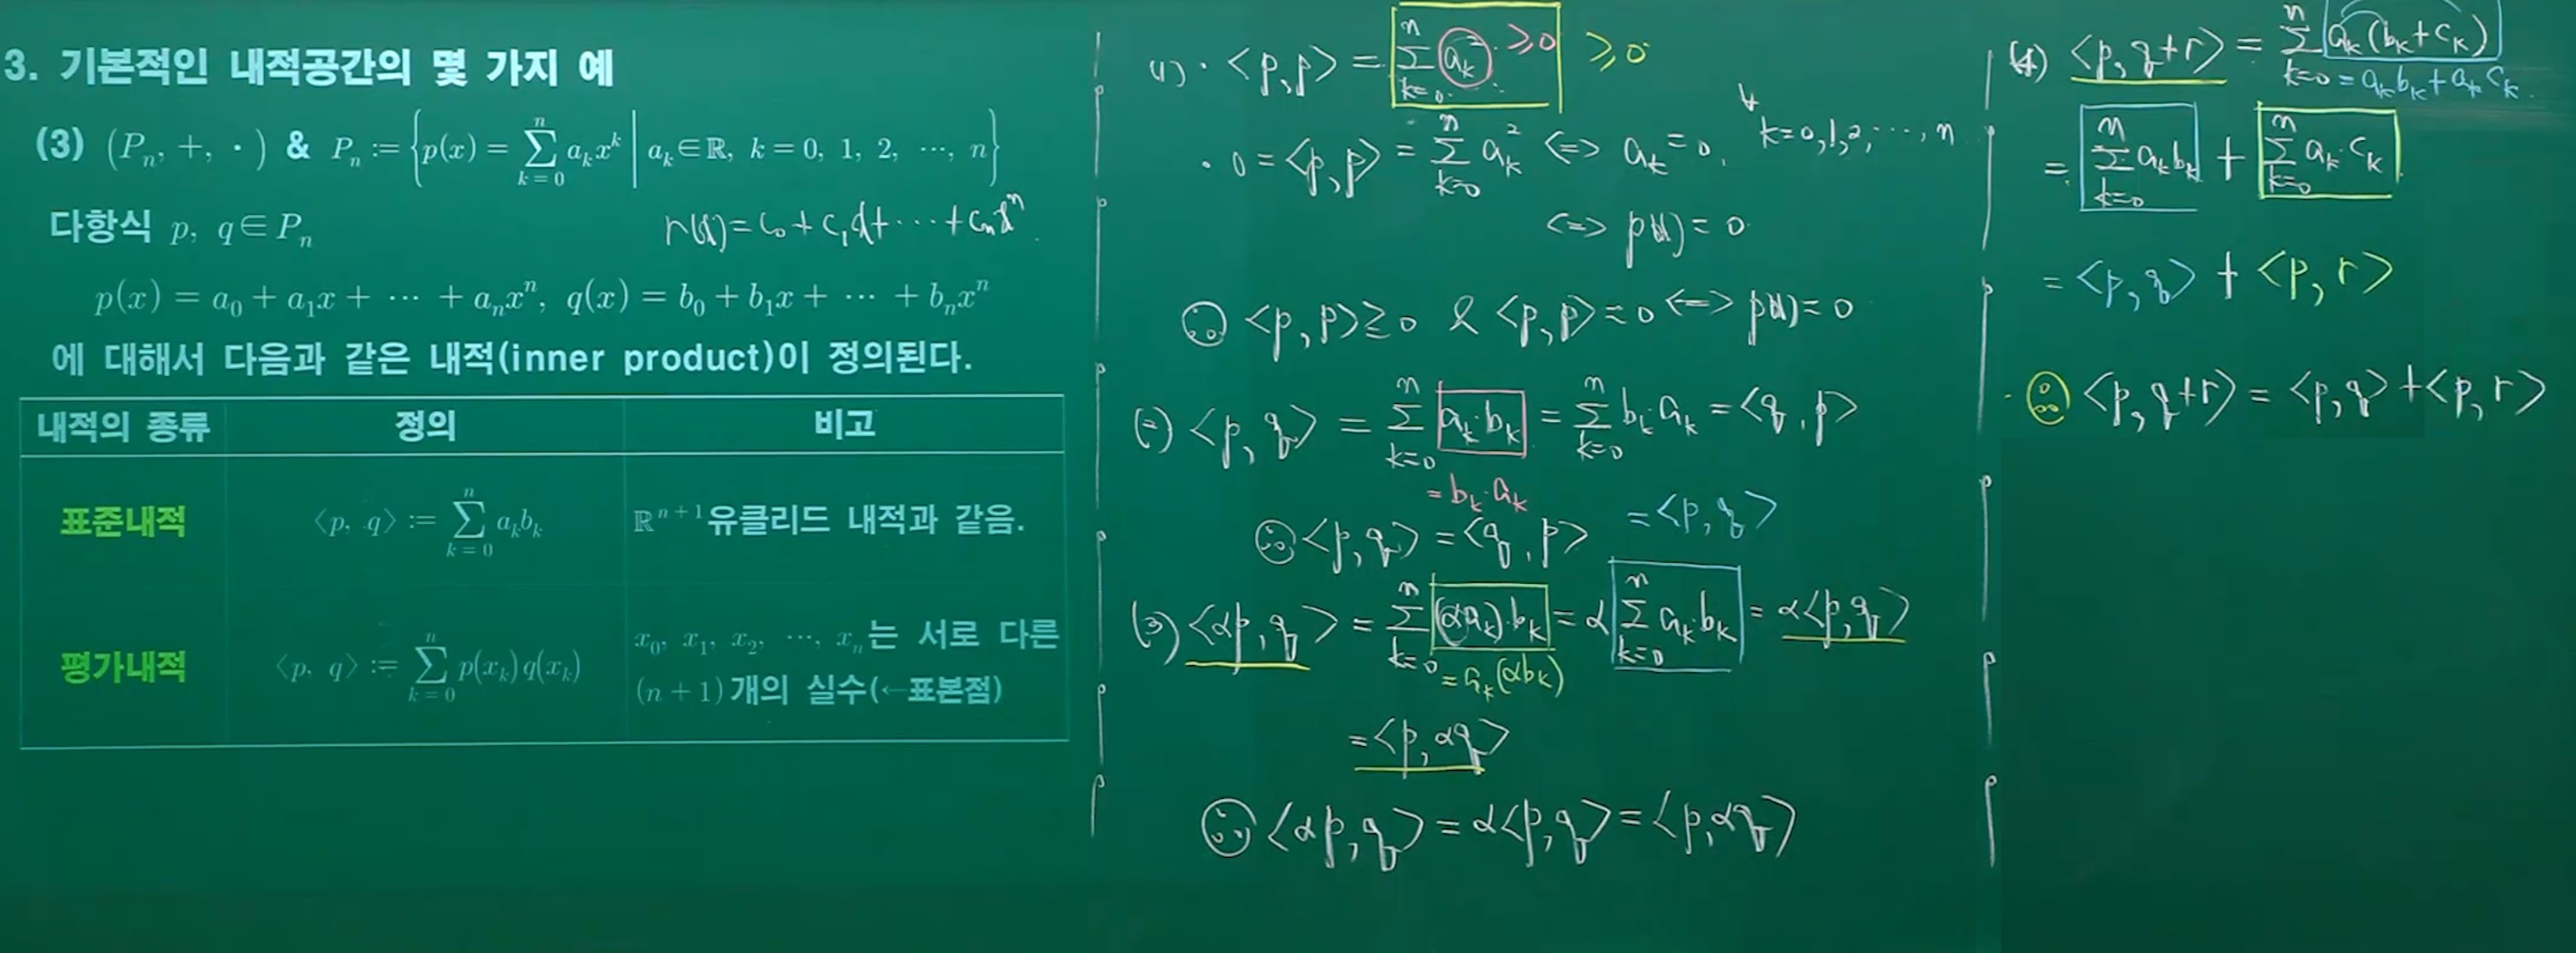 3. 기본적인 내적공간의 몇 가지 예
(3) (Pₙ, +, ·) & Pₙ := { p(x) = ∑_{k=0}^{n} aₖxᵏ | aₖ∈ℝ, k = 0, 1, 2, ⋯, n }
다항식 p, q∈Pₙ
r(x) = c₀ + c₁x + ⋯ + cₙxⁿ.
p(x) = a₀ + a₁x + ⋯ + aₙxⁿ, q(x) = b₀ + b₁x + ⋯ + bₙxⁿ
에 대해서 다음과 같은 내적(inner product)이 정의된다.
내적의 종류 정의 비고
표준내적 ⟨p, q⟩ := ∑_{k=0}^{n} aₖbₖ ℝⁿ⁺¹유클리드 내적과 같음.
평가내적 ⟨p, q⟩ := ∑_{k=0}^{n} p(xₖ)q(xₖ) x₀, x₁, x₂, ⋯, xₙ는 서로 다른
(n+1)개의 실수(←표본점)
(1) · <p,p> = ∑_{k=0}^{n} aₖ² ≥0 ≥0
· 0 = <p,p> = ∑_{k=0}^{n} aₖ² <=> aₖ = 0, ∀k=0,1,2,⋯,n
<=> p(x) = 0
∴ <p,p> ≥ 0 & <p,p> = 0 <=> p(x) = 0
(2) <p,q> = ∑_{k=0}^{n} aₖ·bₖ = ∑_{k=0}^{n} bₖ·aₖ = <q,p>
= bₖ·aₖ
∴ <p,q> = <q,p>
= <p,q>
(3) <αp,q> = ∑_{k=0}^{n} (αaₖ)·bₖ = α ∑_{k=0}^{n} aₖ·bₖ = α<p,q>
= aₖ(αbₖ)
= <p,αq>
∴ <αp,q> = α<p,q> = <p,αq>
(4) <p,q+r> = ∑_{k=0}^{n} aₖ(bₖ+cₖ)
= aₖbₖ + aₖcₖ.
= ∑_{k=0}^{n} aₖbₖ + ∑_{k=0}^{n} aₖ·cₖ
= <p,q> + <p,r>
∴ <p,q+r> = <p,q> + <p,r>